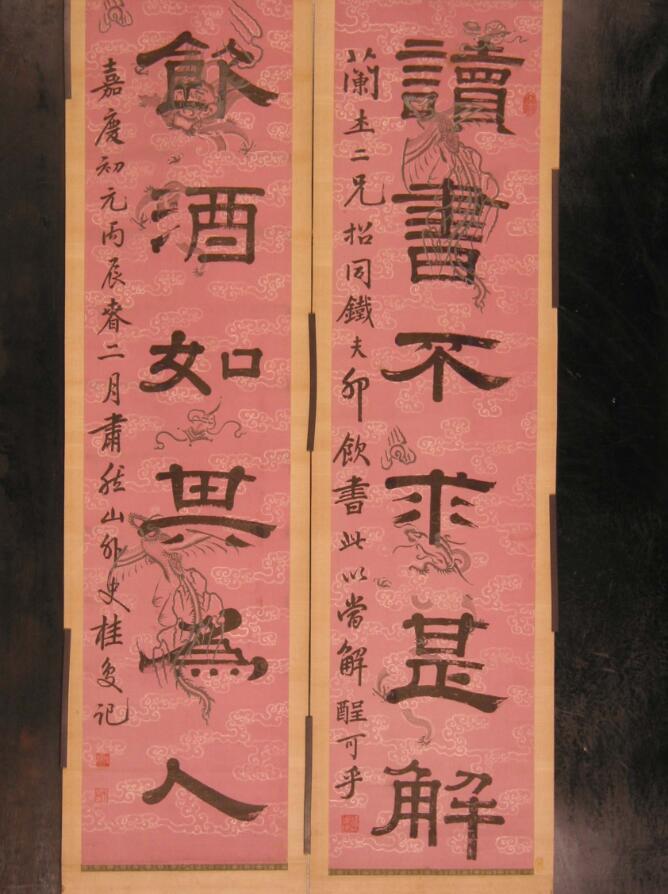 讀書不求甚解
蘭士二兄招同鐵夫卯飲書此以當解酲可乎
飲酒如其為人
嘉慶初元丙辰春二月肅然山外史桂馥記